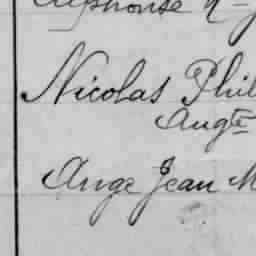 Alphonse
Nicolas Phil
Augte
Ange Jean M